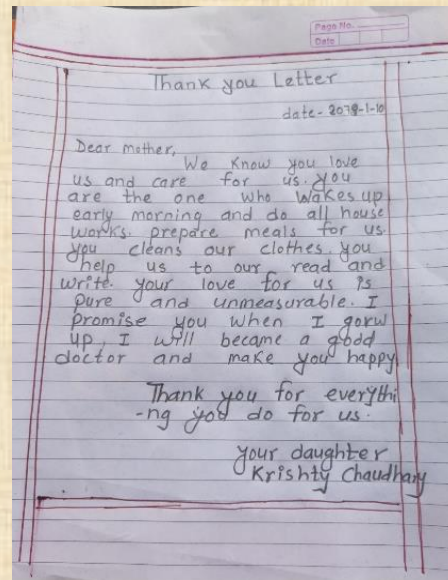 Page No.
Date
Thank you Letter
date - 2079-1-10
Dear mother,
We know you love
us and care for us. you
are the one who wakes up
early morning and do all house
works. prepare meals for us.
you cleans our clothes. you
help us to our read and
write. your love for us is
pure and unmeasurable. I
promise you when I gorw
up, I will became a good
doctor and make you happy
Thank you for everythi
-ng you do for us.
your daughter
Krishty Chaudhary